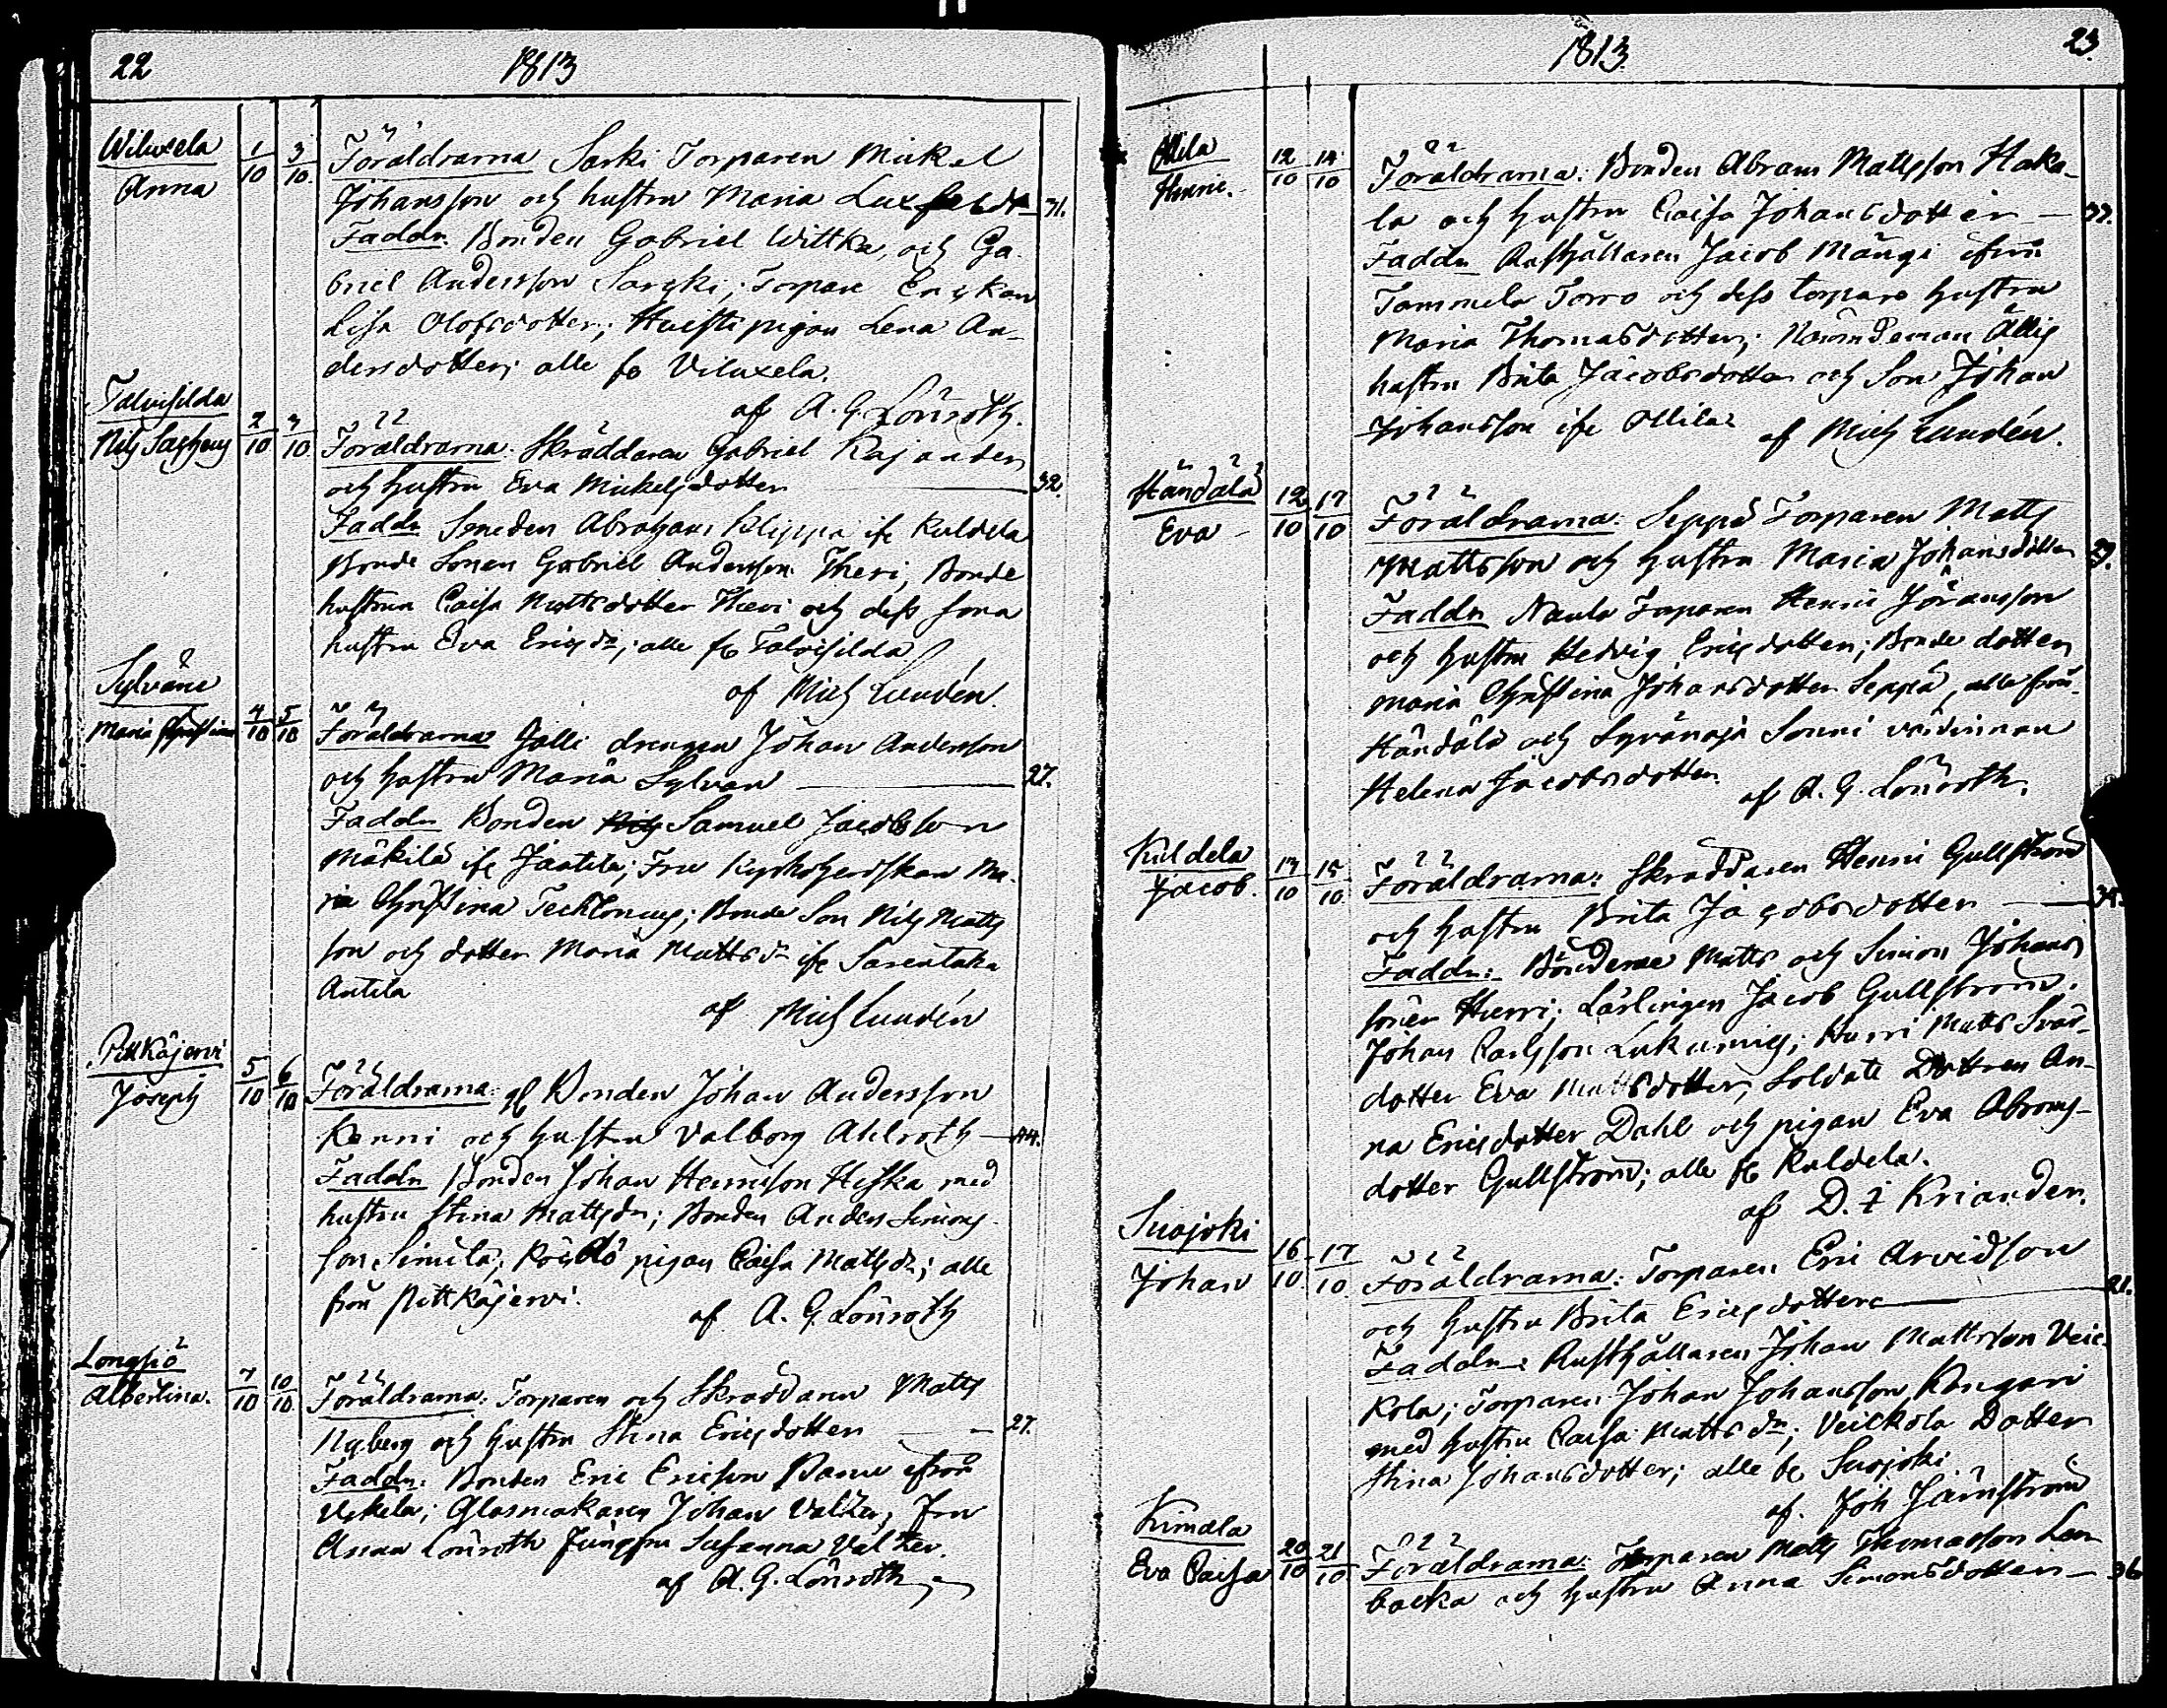 22
1813
Wiluxela
Anna
1/10 3/10
Föräldrarna Sarki Torparen Mickel
Johansson och hustru Maria Lux 31.
Faddr. Bonden Gabriel Wittka, och Ga-
briel Andersson Sargki; Torpare Enkan
Lisa Olofsdotter; Huisti pigan Lena An-
dersdotter; alle fr Viluxela.
af A. G. Lönroth.
Talvisilda
Nils
2/10 3/10
Föräldrarna. Skräddaren Gabriel Rajander
och hustru Eva Mickelsdotter 32.
Faddr Smeden Abraham Klippa ifr Kuldela
Bonde Sonen Gabriel Andersson Theri, Bonde
hustrun Caisa Mattsdotter Theri och dess sona
hustru Eva Ericsdr; alle fr Talvisilda
af Mich Lunden.
Sylväne
Maria Christina
4/10 5/10
Föräldrarna Jälli drengen Johan Andersson
och hustru Maria Sylvan 27.
Faddr Bonden Samuel Jacobsson
Mäkilä ifr Jaatila; Fru Kyrkoherdskan Ma-
ria Christina; Bonde Son Nils Matts
son och dotter Maria Mattsdr ifr Sarentaka
Antila
af Mich Lunden
Pitkäjervi
Joseph
5/10 6/10
Föräldrarna: Bonden Johan Andersson
Kenni och hustru Valborg Ahlroth 44.
Faddr Bonden Johan Hennsson Hiska med
hustru Stina Mattsdr; Bonden Anders Simons-
son Simila; pigan Caisa Mattsdr; alle
från Pittkäjervi.
af A. G. Lönroth
Longsiö
Albertina.
7/10 10/10
Föräldrarna: Torparen och Skräddaren Matts
Nyberg och hustru Stina Ericsdotter 27.
Faddr: Bonden Eric Ericson ifrån
Uskela; Glasmakaren Johan Valter, Fru
Anna Lönroth Jungfru Susanna Valter.
af A. G. Lönroth
1813.
23.
Ollila
Henric.
12/10 14/10
Föräldrarna: Bonden Abram Mattsson Haka-
la och hustru Caisa Johansdotter 33.
Faddr Rusthållaren Jacob Mängi ifrån
Tammela Torro och dess torpare hustru
Maria Thomasdotter; Nämndeman Ällis
hustru Brita Jacobsdotter och Son Johan
Johansson ifr Ollila
af Mich Lundén.
Händälä
Eva
12/10 17/10
Föräldrarna: Seppä Torparen Matts
Mattsson och hustru Maria Johansdotter 29.
Faddr Naula Torparen Henric Jöransson
och hustru Hedvig Ericsdotter; Bonde dotter
Maria Christina Johansdotter Seppä, alla från
Händälä och Syvänoja Sonni värdinnan
Helena Jacobsdotter.
af A. G. Lönroth.
Kuldela
Jacob.
13/10 15/10
Föräldrarna: Skräddaren Henric Gullström
och hustru Brita Jacobsdotter 34.
Faddr: Bönderne Matts och Simon Johans
söner Hierri; Lärlingen Jacob Gullström.
Johan Carlsson Lukumies; Hurri Matts Svär-
dotter Eva Mattsdotter; Soldate Dottren An-
na Ericsdotter Dahl och pigan Eva Abrams-
dotter Gullström; alle fr Kuldela.
af D. J Kriander.
Suojoki
Johan
16/10 17/10
Föräldrarna: Torparen Eric Arvidsson
och hustru Brita Ericsdotter 21.
Faddr: Rusthållaren Johan Mattsson Veic
kola; Torparen Johan Johansson Kangari
med hustru Caisa Mattsdr; Veickola Dotter
Stina Johansdotter; alle fr Suojoki
af. Joh Järnström
Kimala
Eva Caisa
20/10 21/10
Föräldrarna: Torparen Matts Thomasson Len
backa och hustru Anna Simonsdotter 36